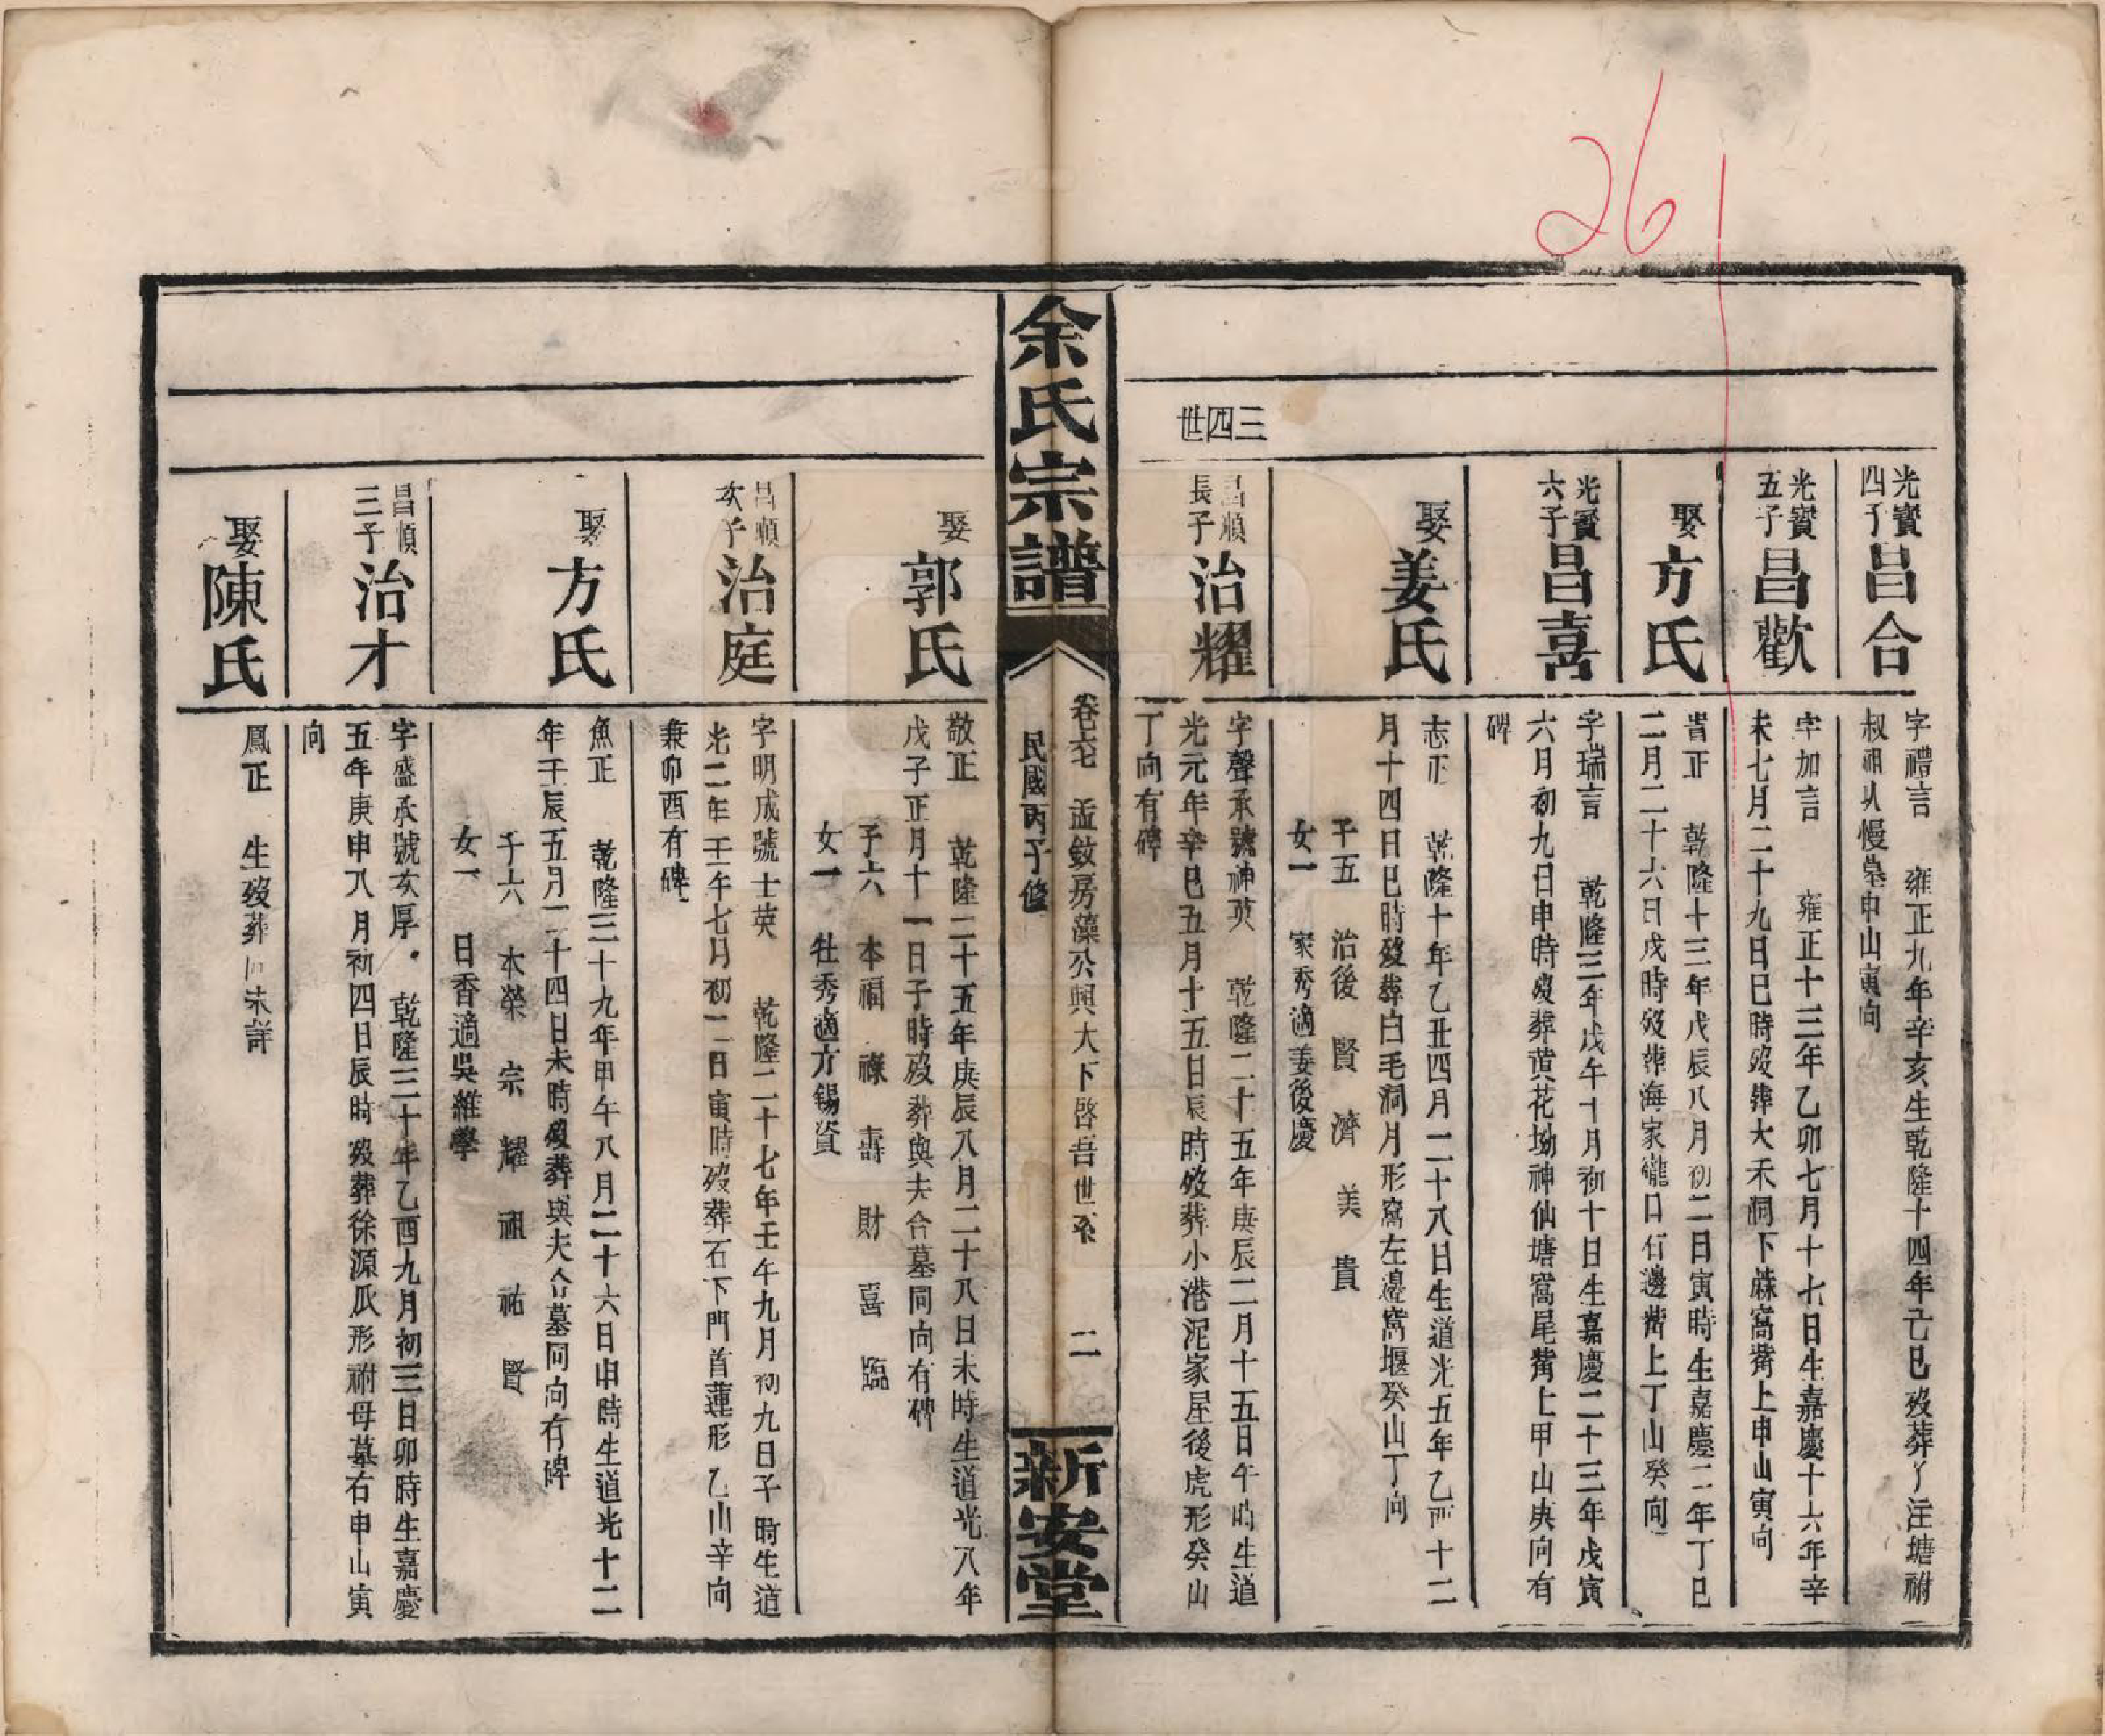 261
光寶
四子
昌合
字禮言 雍正九年辛亥生乾隆十四年己巳歿葬丫注塘祔
叔祖從慢墓申山寅向
光寶
五子
昌歡
字加言 雍正十三年乙卯七月十七日生嘉慶十六年辛
未七月二十九日巳時歿葬大禾洞下蔴窩觜上申山寅向
娶
方氏
胄正 乾隆十三年戊辰八月初二日寅時生嘉慶二年丁巳
二月二十六日戌時歿葬海家嚨口右邊觜上丁山癸向
光寶
六子
昌喜
字瑞言 乾隆三年戊午十月初十日生嘉慶二十三年戊寅
六月初九日申時歿葬黃花坳神仙塘窩尾觜上甲山庚向有
碑
娶
姜氏
志正 乾隆十年乙丑四月二十八日生道光五年乙酉十二
月十四日巳時歿葬白毛洞月形窩左邊窩堰癸山丁向
子五 治後 賢 濟 美 貴
女一 家秀適姜後慶
三四世
昌順
長子
治耀
字聲承號神英 乾隆二十五年庚辰二月十五日午時生道
光元年辛巳五月十五日辰時歿葬小港泥家屋後虎形癸山
丁向有碑
余氏宗譜
卷七 孟敘房藻公與大下啓吾世系 二
民國丙子修
新安堂
娶
郭氏
敬正 乾隆二十五年庚辰八月二十八日未時生道光八年
戊子正月十一日子時歿葬與夫合墓同向有碑
子六 本福 祿 壽 財 喜 臨
女一 牡秀適方錫資
昌順
次子
治庭
字明成號士英 乾隆二十七年壬午九月初九日子時生道
光二年壬午七月初二日寅時歿葬石下門首蓮形乙山辛向
兼卯酉有碑
娶
方氏
魚正 乾隆三十九年甲午八月二十六日申時生道光十二
年壬辰五月二十四日未時歿葬與夫合墓同向有碑
子六 本榮 宗 耀 祖 祐 賢
女一 日香適吳維學
昌順
三子
治才
字盛承號友厚 乾隆三十年乙酉九月初三日卯時生嘉慶
五年庚申八月初四日辰時歿葬徐源瓜形祔母墓右申山寅
向
娶
陳氏
鳳正 生歿葬向未詳